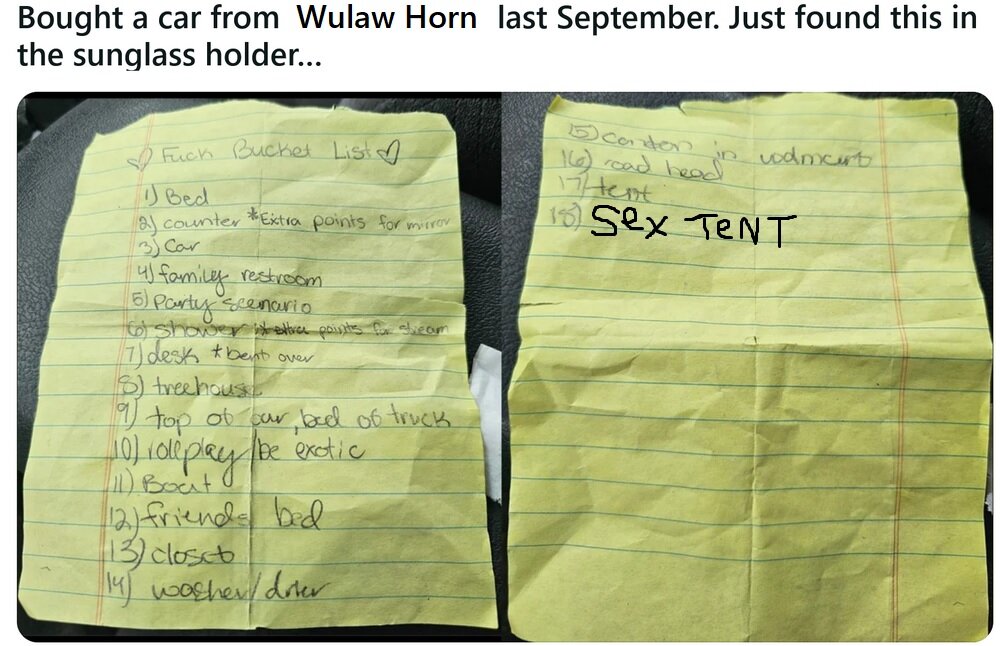 Bought a car from Wulaw Horn last September. Just found this in
the sunglass holder...
Fuck Bucket List
1) Bed
2) counter *Extra points for mirror
3) Car
4) family restroom
5) Party scenario
6) shower * extra points for steam
7) desk * bent over
8) treehouse
9) top of car, bed of truck
10) roleplay/be exotic
11) Boat
12) friends bed
13) closet
14) washer/drier
15) in
16) road head
17) tent
18) Sex TeNT